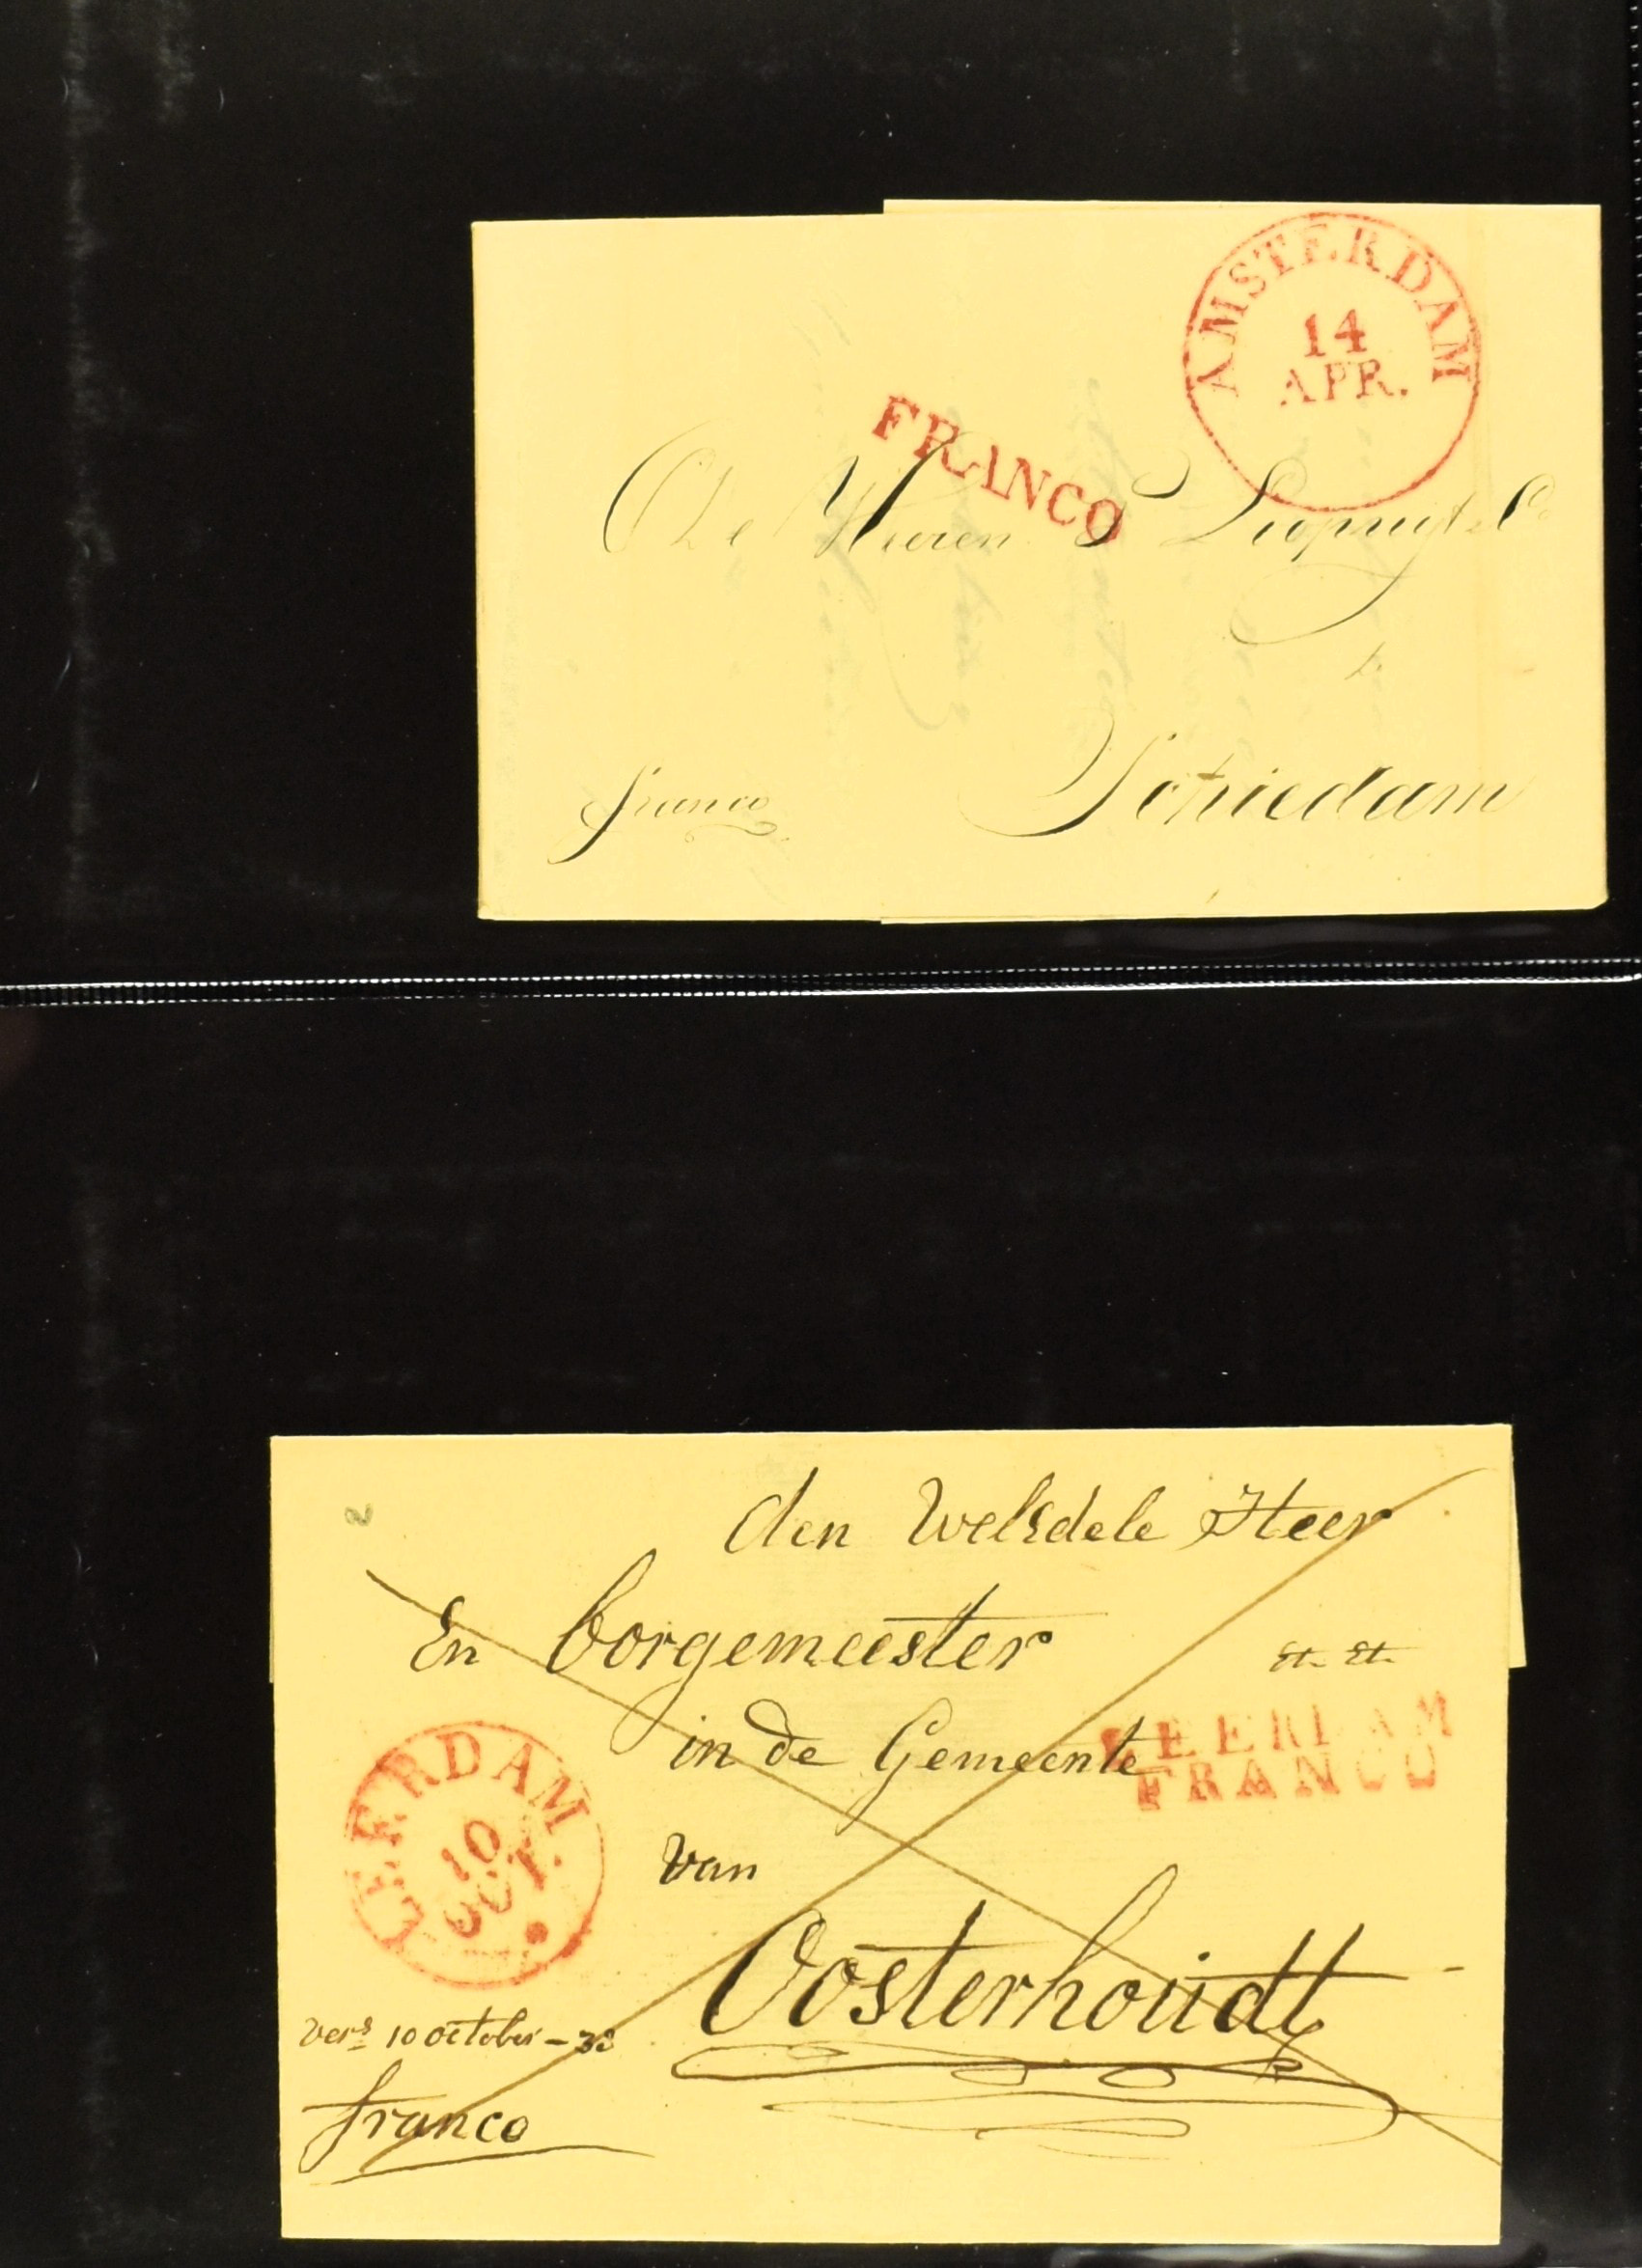 AMSTERDAM
14
APR.
FRANCO
De Heeren
te
franco
Schiedam
2
den WelEdele Heer
En borgemeester
Etc Etc
in de Gemeente
LEERDAM
FRANCO
LEERDAM
10
OCT.
van
Oosterhoudt
vers 10 october - 
franco